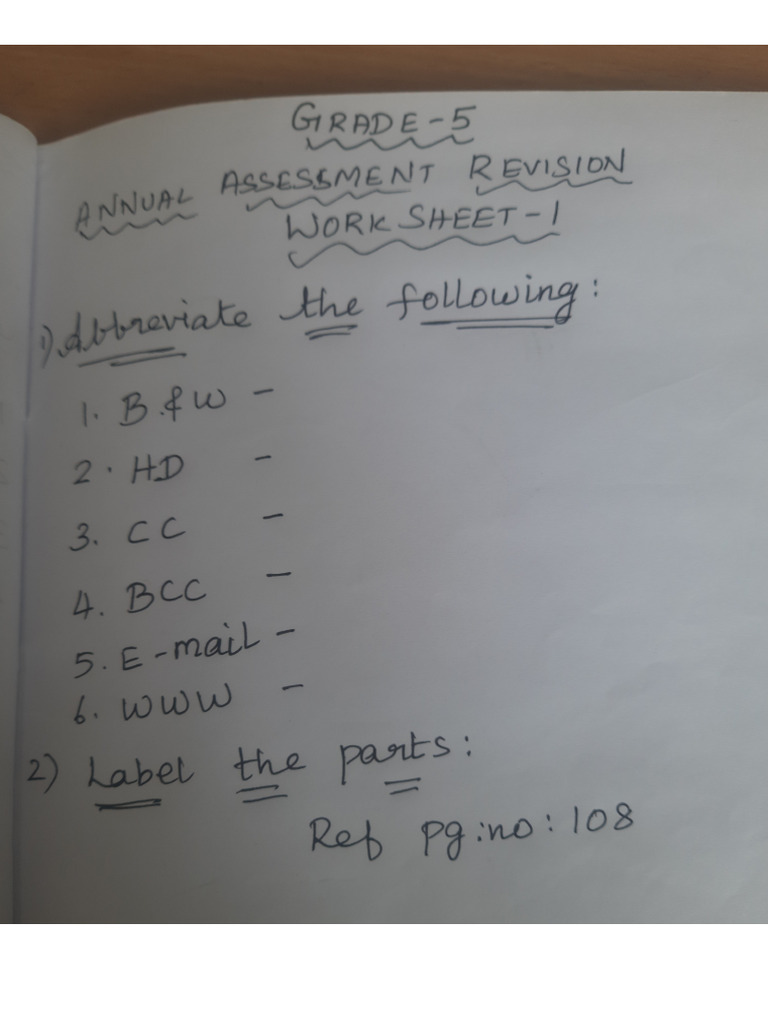 GRADE-5
ANNUAL ASSESSMENT REVISION
WORK SHEET-1
1) Abbreviate the following:
1. B.&W -
2. HD -
3. CC -
4. BCC -
5. E-mail -
6. WWW -
2) Label the parts:
Ref pg:no: 108